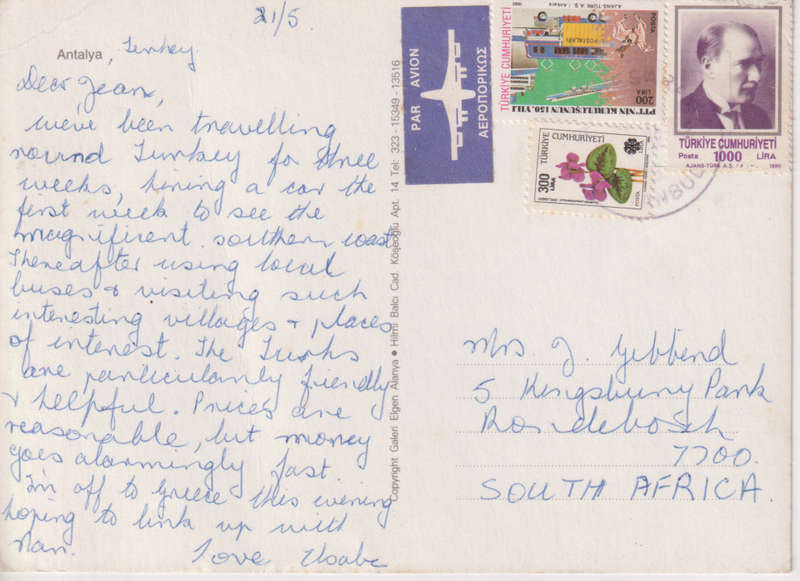 21/5.
Antalya, Turkey
Dear Jean,
we've been travelling
round Turkey for three
weeks, hiring a car the
first week to see the
magnificent southern coast
Thereafter using local
buses & visiting such
interesting villages & places
of interest. The Turks
are particularly friendly
& helpful. Prices are
reasonable, but money
goes alarmingly fast.
I'm off to Greece this evening
hoping to link up with
Nan.
Love
Copyright Galeri Elgen Alanya • Hilmi Balcı Cad. Köseoğlu Apt. 14 Tel: 323 -15349 -13516
PAR AVION
ΑΕΡΟΠΟΡΙΚΩΣ
TÜRKİYE CUMHURİYETİ
AJANS-TÜRK A.Ş. / Ankara
POSTA
200
LİRA
PTT'NİN KURULUŞUNUN 150. YILI
300
LİRA
TÜRKİYE CUMHURİYETİ
POSTA
TÜRKİYE CUMHURİYETİ
Posta 1000 LİRA
AJANS-TÜRK A.Ş. 1990
Mrs J. Gibbend
5 Kingsbury Park
Rondebosch
7700.
SOUTH AFRICA.